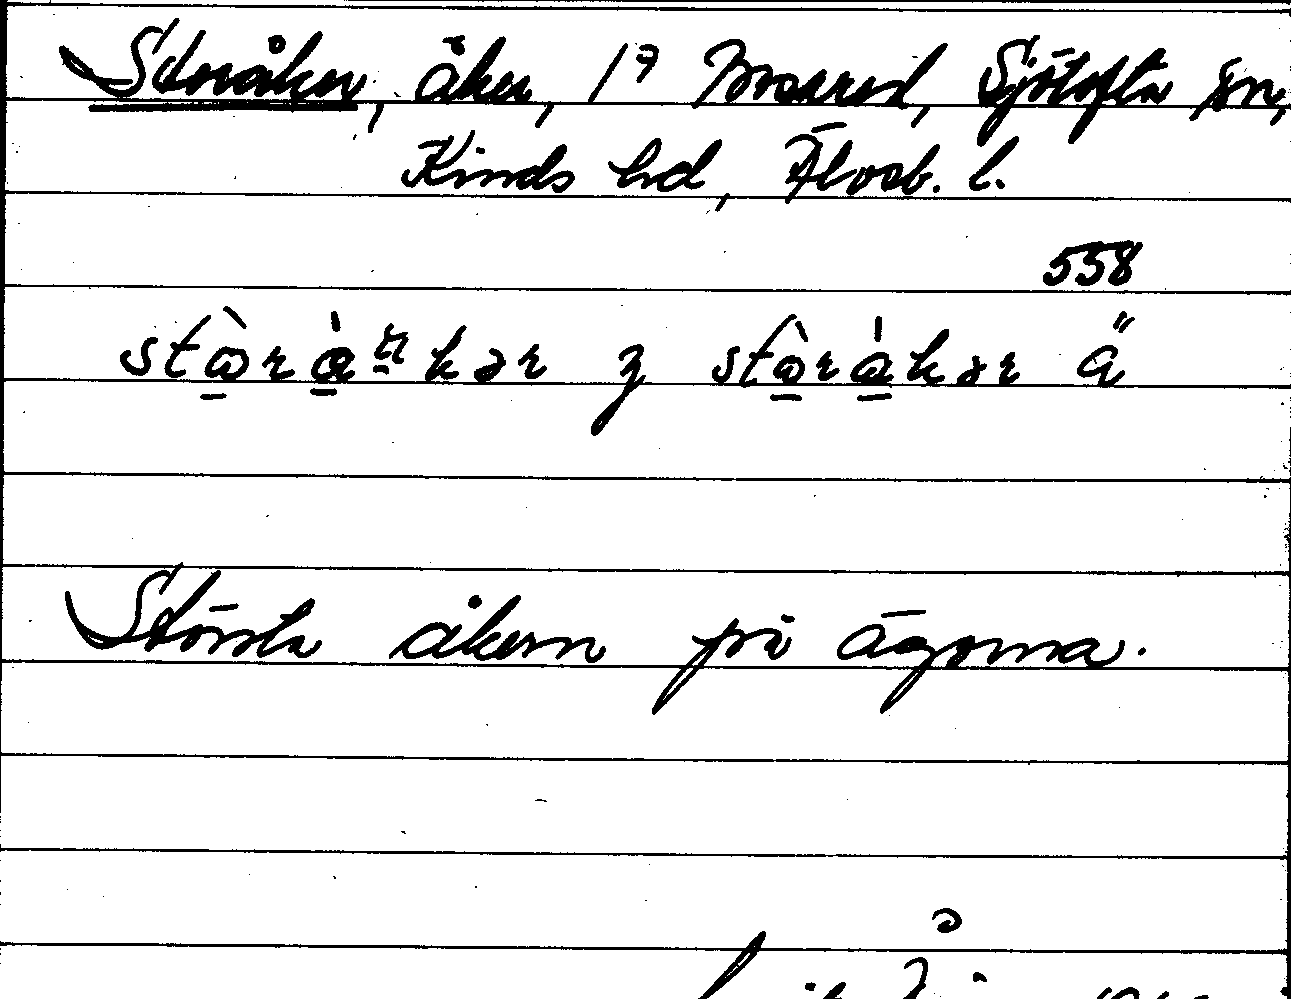 Storåker, åker, 1⁷ Brosared, Sjötofta sn,
Kinds hd, Älvsb. l.
558
stὼrὰkər ʒ stὼrὰkər å̈
Största åkern på ägorna.